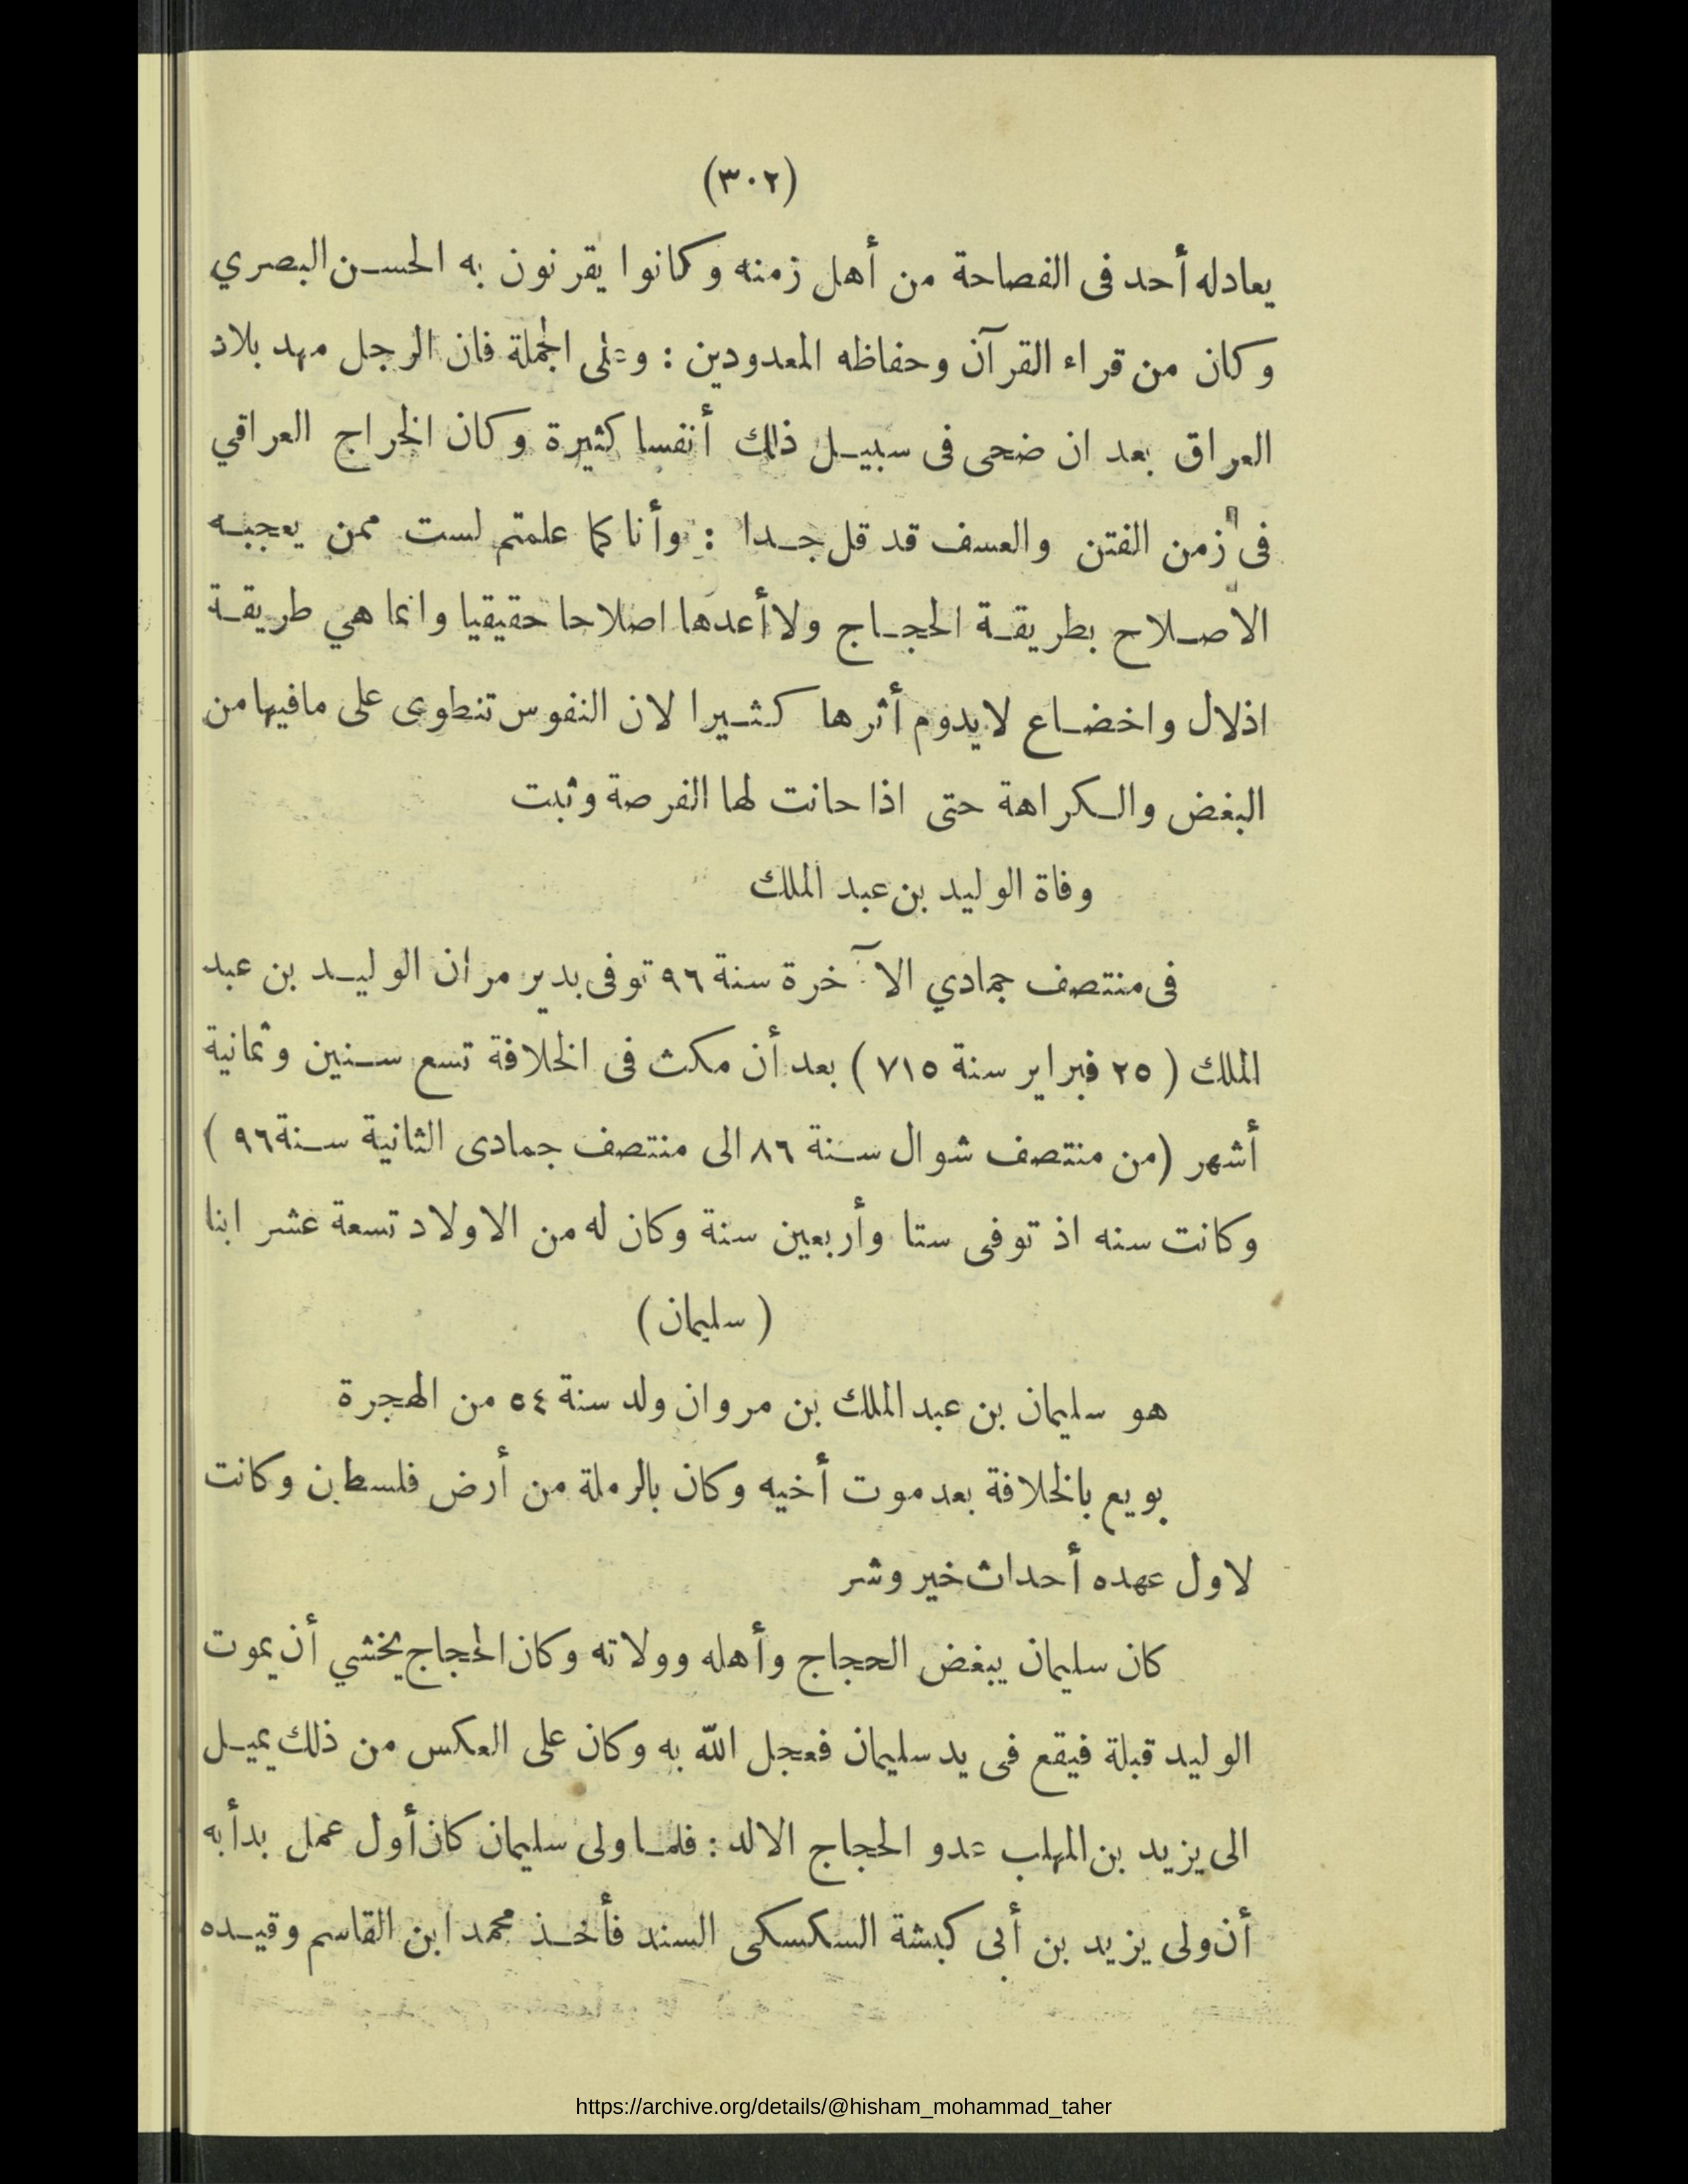 (٣٠٢)
يعادله أحد فى الفصاحة من أهل زمنه وكانوا يقرنون به الحسن البصري
وكان من قراء القرآن وحفاظه المعدودين : وعلى الجملة فان الرجل مهد بلاد
العراق بعد ان ضحى فى سبيل ذلك أنفسا كثيرة وكان الخراج العراقي
فى زمن الفتن والعسف قد قل جدا : وأنا كما علمتم لست ممن يعجبه
الاصلاح بطريقة الحجاج ولا أعدها اصلاحا حقيقيا وانما هي طريقة
اذلال واخضاع لايدوم أثرها كثيرا لان النفوس تنطوى على مافيها من
البغض والكراهة حتى اذا حانت لها الفرصة وثبت
وفاة الوليد بن عبد الملك
فى منتصف جمادي الآخرة سنة ٩٦ توفى بدير مران الوليد بن عبد
الملك ( ٢٥ فبراير سنة ٧١٥ ) بعد أن مكث فى الخلافة تسع سنين وثمانية
أشهر (من منتصف شوال سنة ٨٦ الى منتصف جمادى الثانية سنة ٩٦ )
وكانت سنه اذ توفى ستا وأربعين سنة وكان له من الاولاد تسعة عشر ابنا
( سليمان )
هو سليمان بن عبد الملك بن مروان ولد سنة ٥٤ من الهجرة
بويع بالخلافة بعد موت أخيه وكان بالرملة من أرض فلسطين وكانت
لاول عهده أحداث خير وشر
كان سليمان يبغض الحجاج وأهله وولاته وكان الحجاج يخشي أن يموت
الوليد قبلة فيقع فى يد سليمان فعجل الله به وكان على العكس من ذلك يميل
الى يزيد بن المهلب عدو الحجاج الالد : فلما ولى سليمان كان أول عمل بدأ به
أن ولى يزيد بن أبى كبشة السكسكى السند فأخذ محمد ابن القاسم وقيده
https://archive.org/details/@hisham_mohammad_taher